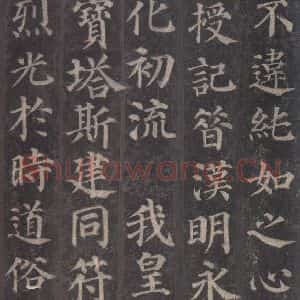 不違純如之心
授記昔漢明永
化初流 我皇
寶塔斯建同符
烈光於時道俗
Shufawang.Cn